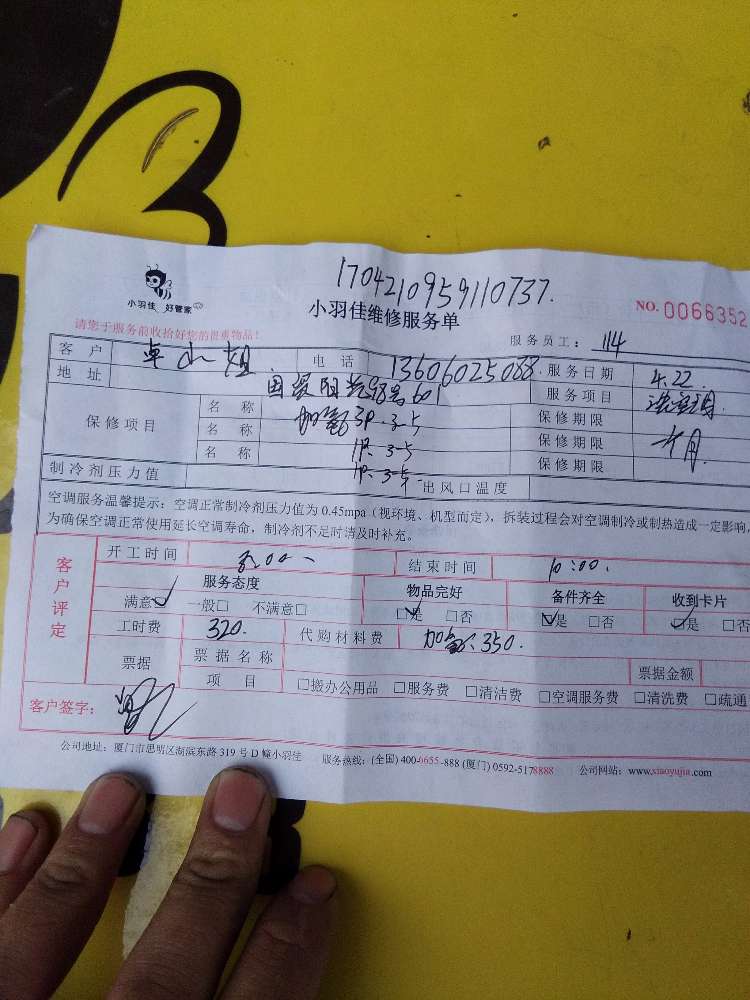 1704210959110737.
小羽佳 好管家
小羽佳维修服务单
NO. 0066352
请您于服务前收拾好您的贵重物品!
服务员工: 114
客户 小姐 电话 13606025088. 服务日期 4.22
地址 601 服务项目
保修项目 名称 加氟3P.3-5 保修期限
名称 1P.3-5 保修期限 月
名称 1P.3-5 保修期限
制冷剂压力值 出风口温度
空调服务温馨提示:空调正常制冷剂压力值为 0.45mpa(视环境、机型而定),拆装过程会对空调制冷或制热造成一定影响,
为确保空调正常使用延长空调寿命,制冷剂不足时请及时补充。
客户评定
开工时间 :00 结束时间 10:00.
服务态度 物品完好 备件齐全 收到卡片
满意 一般□ 不满意□ □是 □否 □是 □否 □是 □否
工时费 320. 代购材料费 加氟:350.
票据 票据名称 票据金额
项目 □搬办公用品 □服务费 □清洁费 □空调服务费 □清洗费 □疏通
客户签字:
公司地址:厦门市思明区湖滨东路 319 号 D 幢小羽佳 服务热线:(全国) 400-6655-888 (厦门) 0592-5178888 公司网站:www.xiaoyujia.com